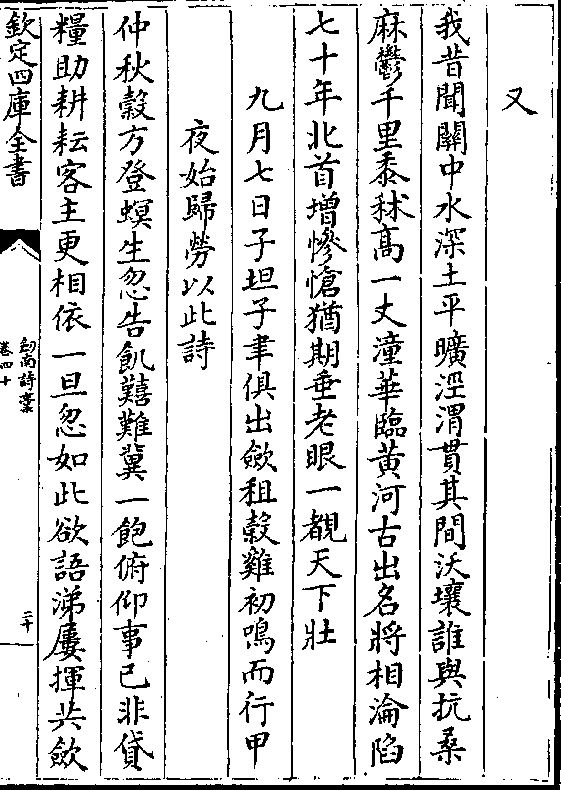 又
我昔聞關中水深土平曠涇渭貫其間沃壤誰與抗桑
麻鬱千里黍秫髙一丈潼華臨黄河古出名將相淪陷
七十年北首增慘愴猶期垂老眼一覩天下壯
九月七日子坦子聿俱出斂租榖雞初鳴而行甲
夜始歸勞以此詩
仲秋榖方登螟生忽告飢囏難冀一飽俯仰事已非貸
糧助耕耘客主更相依一旦忽如此欲語涕屢揮共斂
欽定四庫全書
劒南詩槀
卷四十
二十